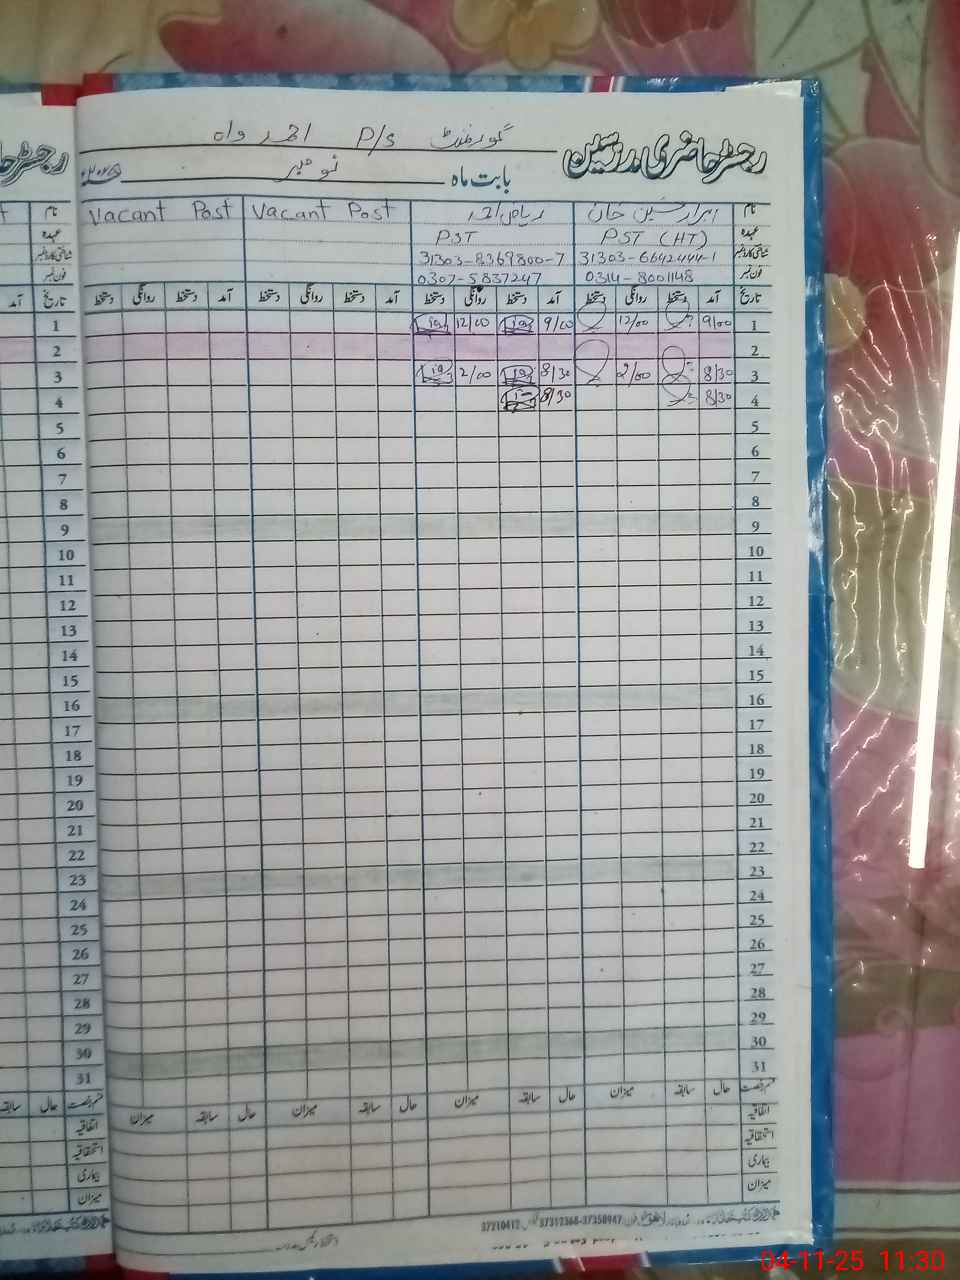 رجسٹر حاضری مدرسین
گورنمنٹ P/S احمد واہ
بابت ماہ نومبر
نام ابرار حسین خان ریاض احمد Vacant Post Vacant Post
عہدہ PST (HT) PST
شناختی کارڈ نمبر 31303-6642444-1 31303-8369800-7
فون نمبر 0314-8001148 0307-5837247
تاریخ آمد دستخط روانگی دستخط آمد دستخط روانگی دستخط آمد دستخط روانگی دستخط آمد دستخط روانگی دستخط
1 9/00 12/00 9/00 12/00
2
3 8/30 2/00 8/30 2/00
4 8/30 8/30
5
6
7
8
9
10
11
12
13
14
15
16
17
18
19
20
21
22
23
24
25
26
27
28
29
30
31
قسم رخصت حال سابقہ میزان حال سابقہ میزان حال سابقہ میزان حال سابقہ میزان
اتفاقیہ
استحقاقیہ
بیماری
میزان
37210412 37312368-37350947
04-11-25 11:30